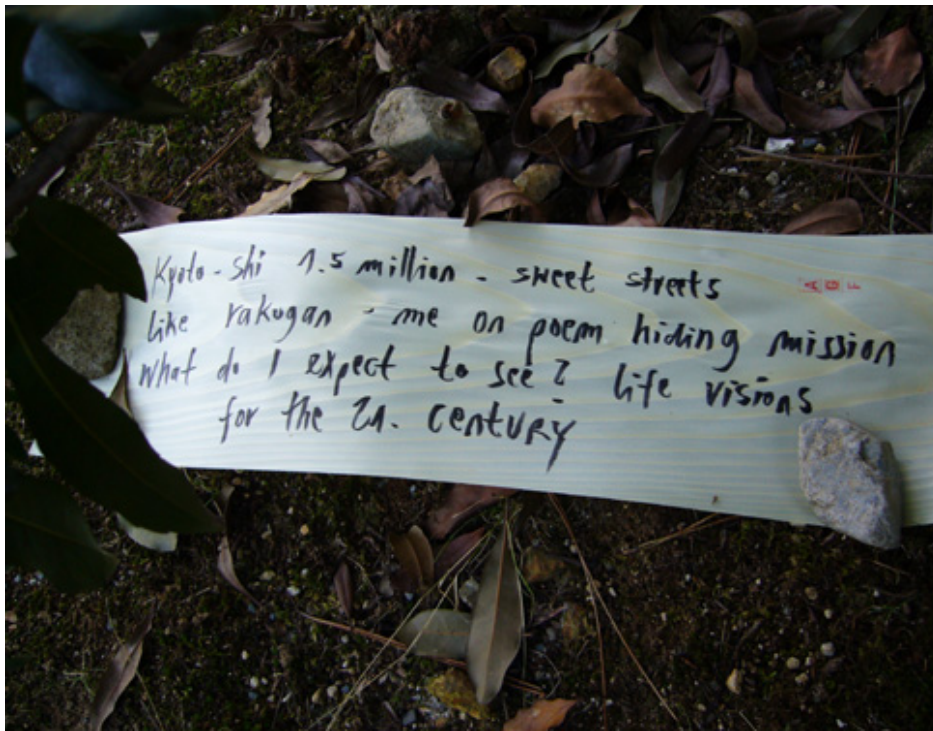 Kyoto-shi 1.5 million - sweet streets
A G F
like rakugan - me on poem hiding mission
What do I expect to see? life visions
for the 21. century